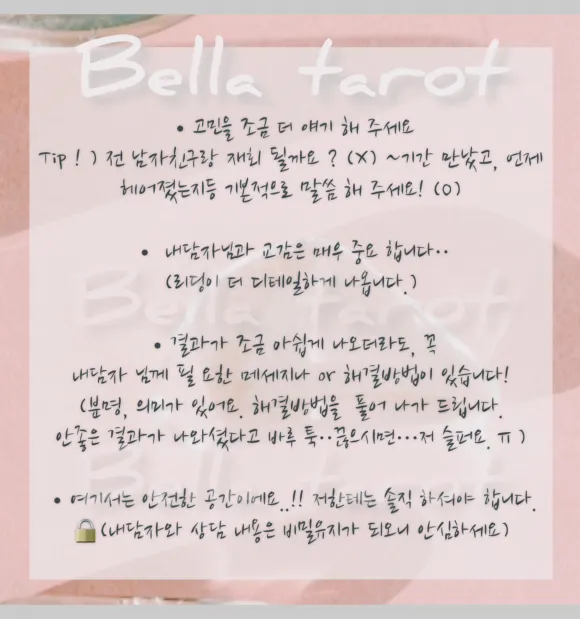 Bella tarot
• 고민을 조금 더 얘기 해 주세요
Tip ! ) 전 남자친구랑 재회 될까요 ? (X) ~기간 만났고, 언제
헤어졌는지등 기본적으로 말씀 해 주세요! (O)
• 내담자님과 교감은 매우 중요 합니다..
(리딩이 더 디테일하게 나옵니다.)
Bella tarot
• 결과가 조금 아쉽게 나오더라도, 꼭
내담자 님께 필 요한 메세지나 or 해결방법이 있습니다!
(분명, 의미가 있어요. 해결방법을 풀어 나가 드립니다.
안좋은 결과가 나와셨다고 바루 툭..끊으시면...저 슬퍼요. ㅠ )
Bella tarot
• 여기서는 안전한 공간이에요..!! 저한테는 솔직 하셔야 합니다.
🔒(내담자와 상담 내용은 비밀유지가 되오니 안심하세요)